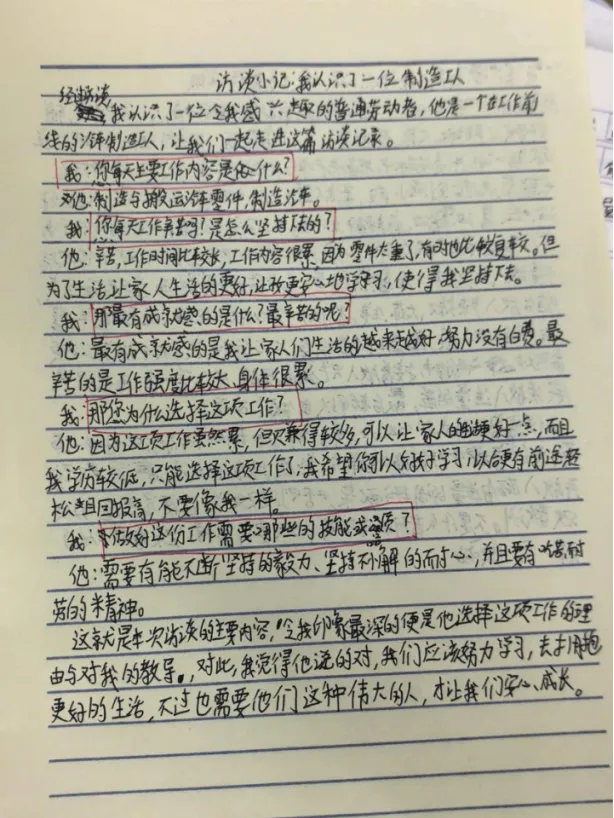 访谈小记:我认识了一位制造工人
经过访谈
我认识了一位令我感兴趣的普通劳动者,他是一个在工作前
线的汽车制造工人,让我们一起走进这篇访谈记录。
我:您每天主要工作内容是做什么?
他:制造与搬运汽车零件,制造汽车。
我:你每天工作辛苦吗?是怎么坚持下去的?
他:辛苦,工作时间比较长,工作内容很累,因为零件太重了,有时也比较复杂。但
为了生活让家人生活的更好,让孩更安心地学习,使得我坚持下去。
我:那最有成就感的是什么?最辛苦的呢?
他:最有成就感的是我让家人们生活的越来越好,努力没有白费。最
辛苦的是工作强度比较大、身体很累。
我:那您为什么选择这项工作?
他:因为这项工作虽然累,但只赚得较多,可以让家人的生活更好一点,而且
我学历较低,只能选择这项工作了,我希望你可以好好学习,以后更有前途轻
松且回报高,不要像我一样。
我:做好这份工作需要那些的技能或品质?
他:需要有能不断坚持的毅力、坚持不懈的而耐心,并且要有吃苦耐
劳的精神。
这就是本次访谈的主要内容,令我印象最深的便是他选择这项工作的理
由与对我的教导,对此,我觉得他说的对,我们应该努力学习,去拥抱
更好的生活,不过也需要他们这种伟大的人,才让我们安心成长。